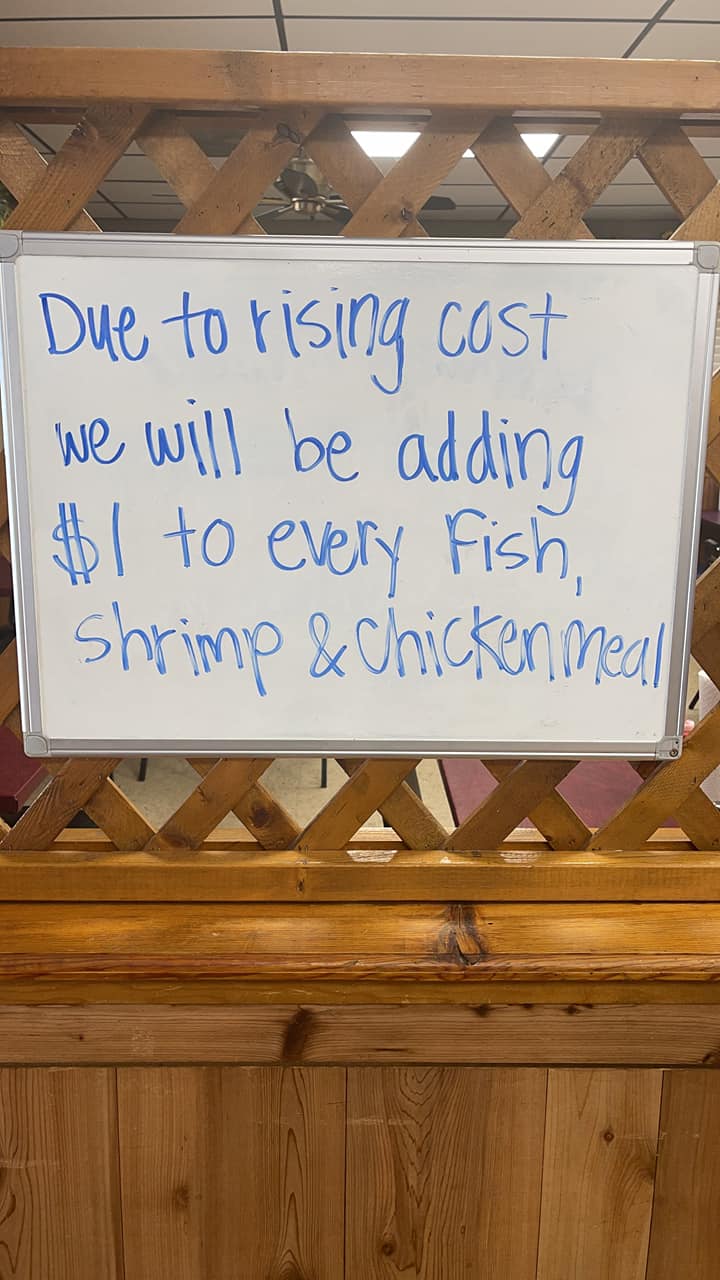 Due to rising cost
we will be adding
$1 to every Fish,
shrimp & chicken meal